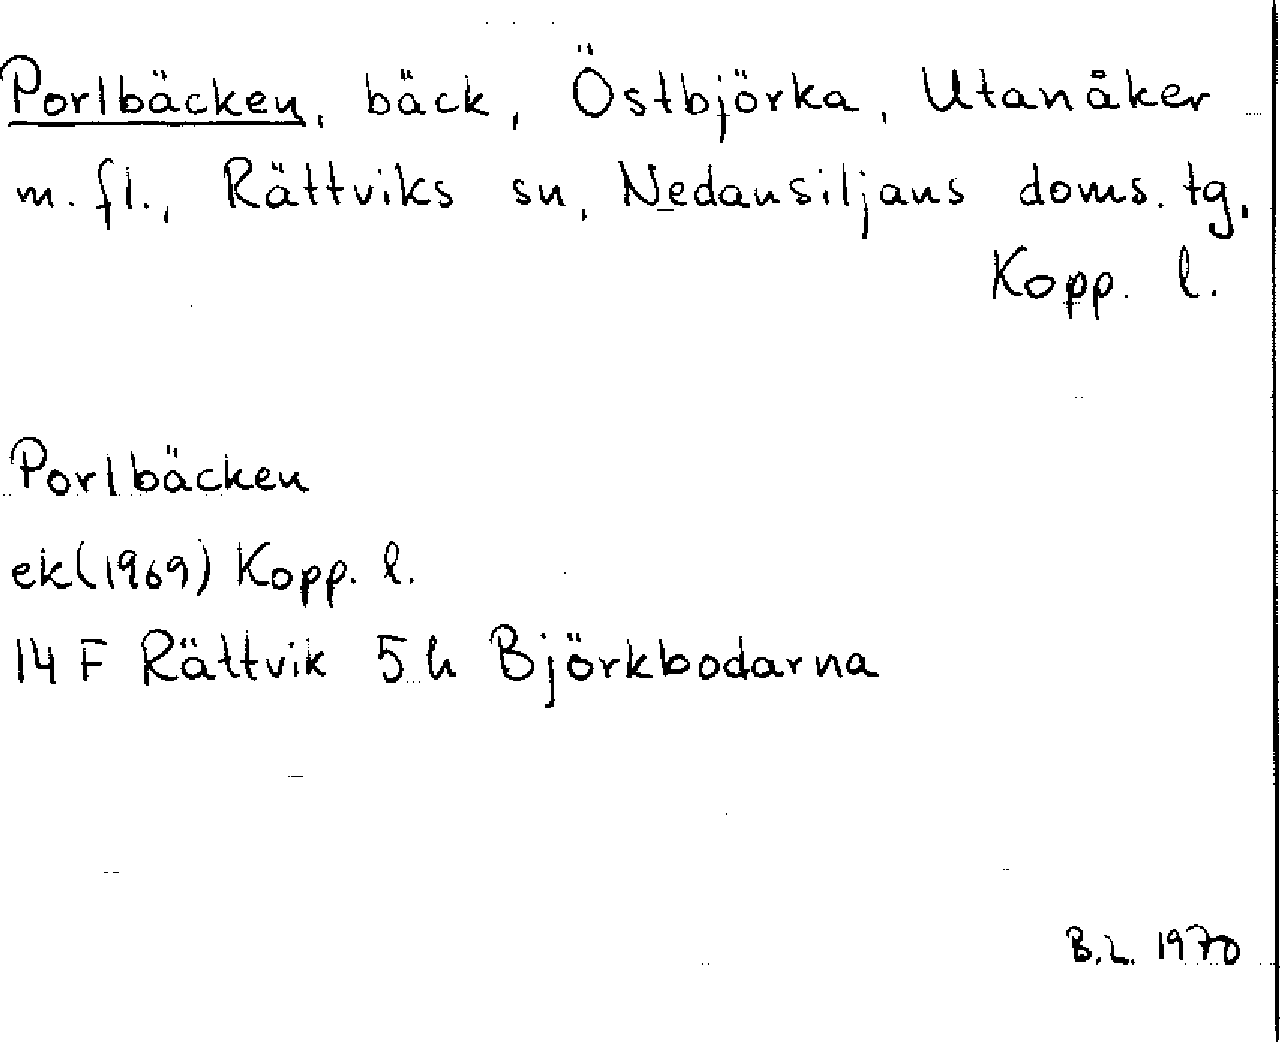 Porlbäcken, bäck, Östbjörka, Utanåker
m. fl., Rättviks sn, Nedansiljans doms. tg,
Kopp. l.
Porlbäcken
ek(1969) Kopp. l.
14 F Rättvik 5 h Björkbodarna
B.L. 1970